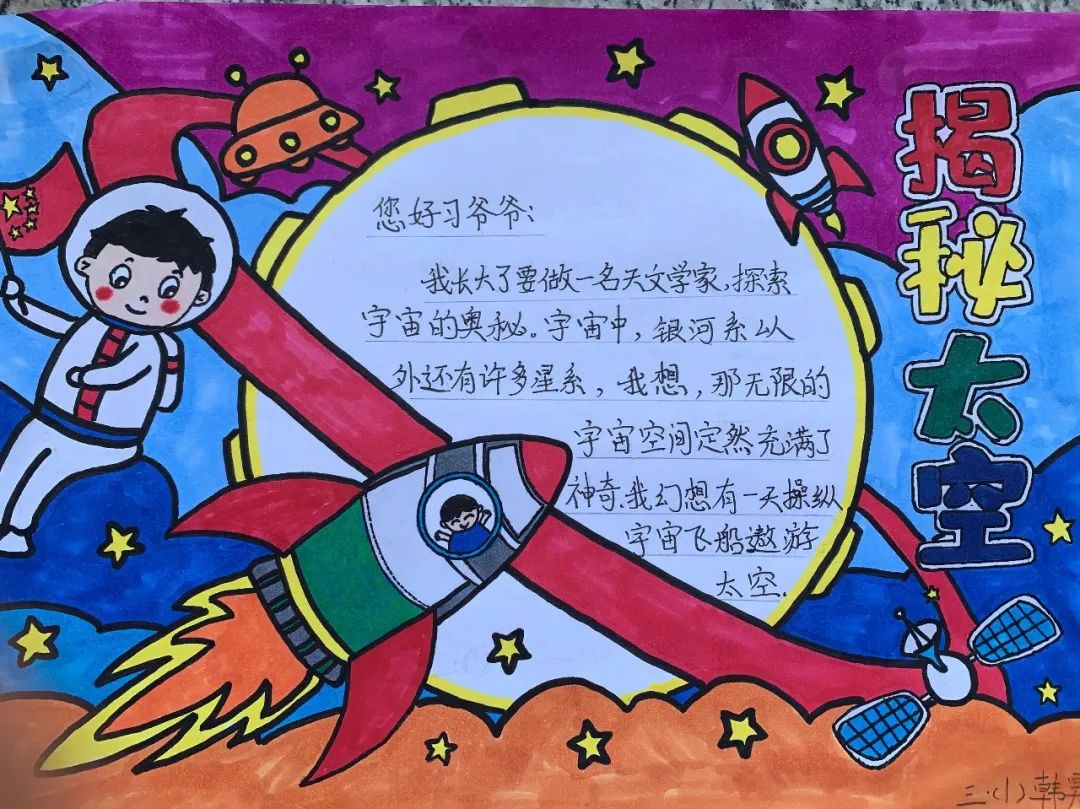 揭秘太空
您好习爷爷:
我长大了要做一名天文学家,探索
宇宙的奥秘。宇宙中,银河系以
外还有许多星系,我想,那无限的
宇宙空间定然充满了
神奇.我幻想有一天操纵
宇宙飞船遨游
太空.
三.(1) 韩